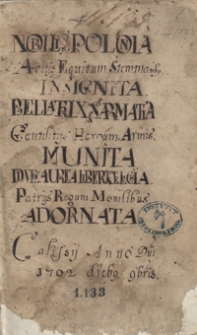 NOBILES POLONIA
Avitis Equitum Stemmatis
INSIGNITA
BELLATRIX SARMATIA
Gentilitijs Heroum Armis
MUNITA
Patrijs Regum Monilibus
ADORNATA
Calissij Anno Dni
1702 die 9bris
1.133